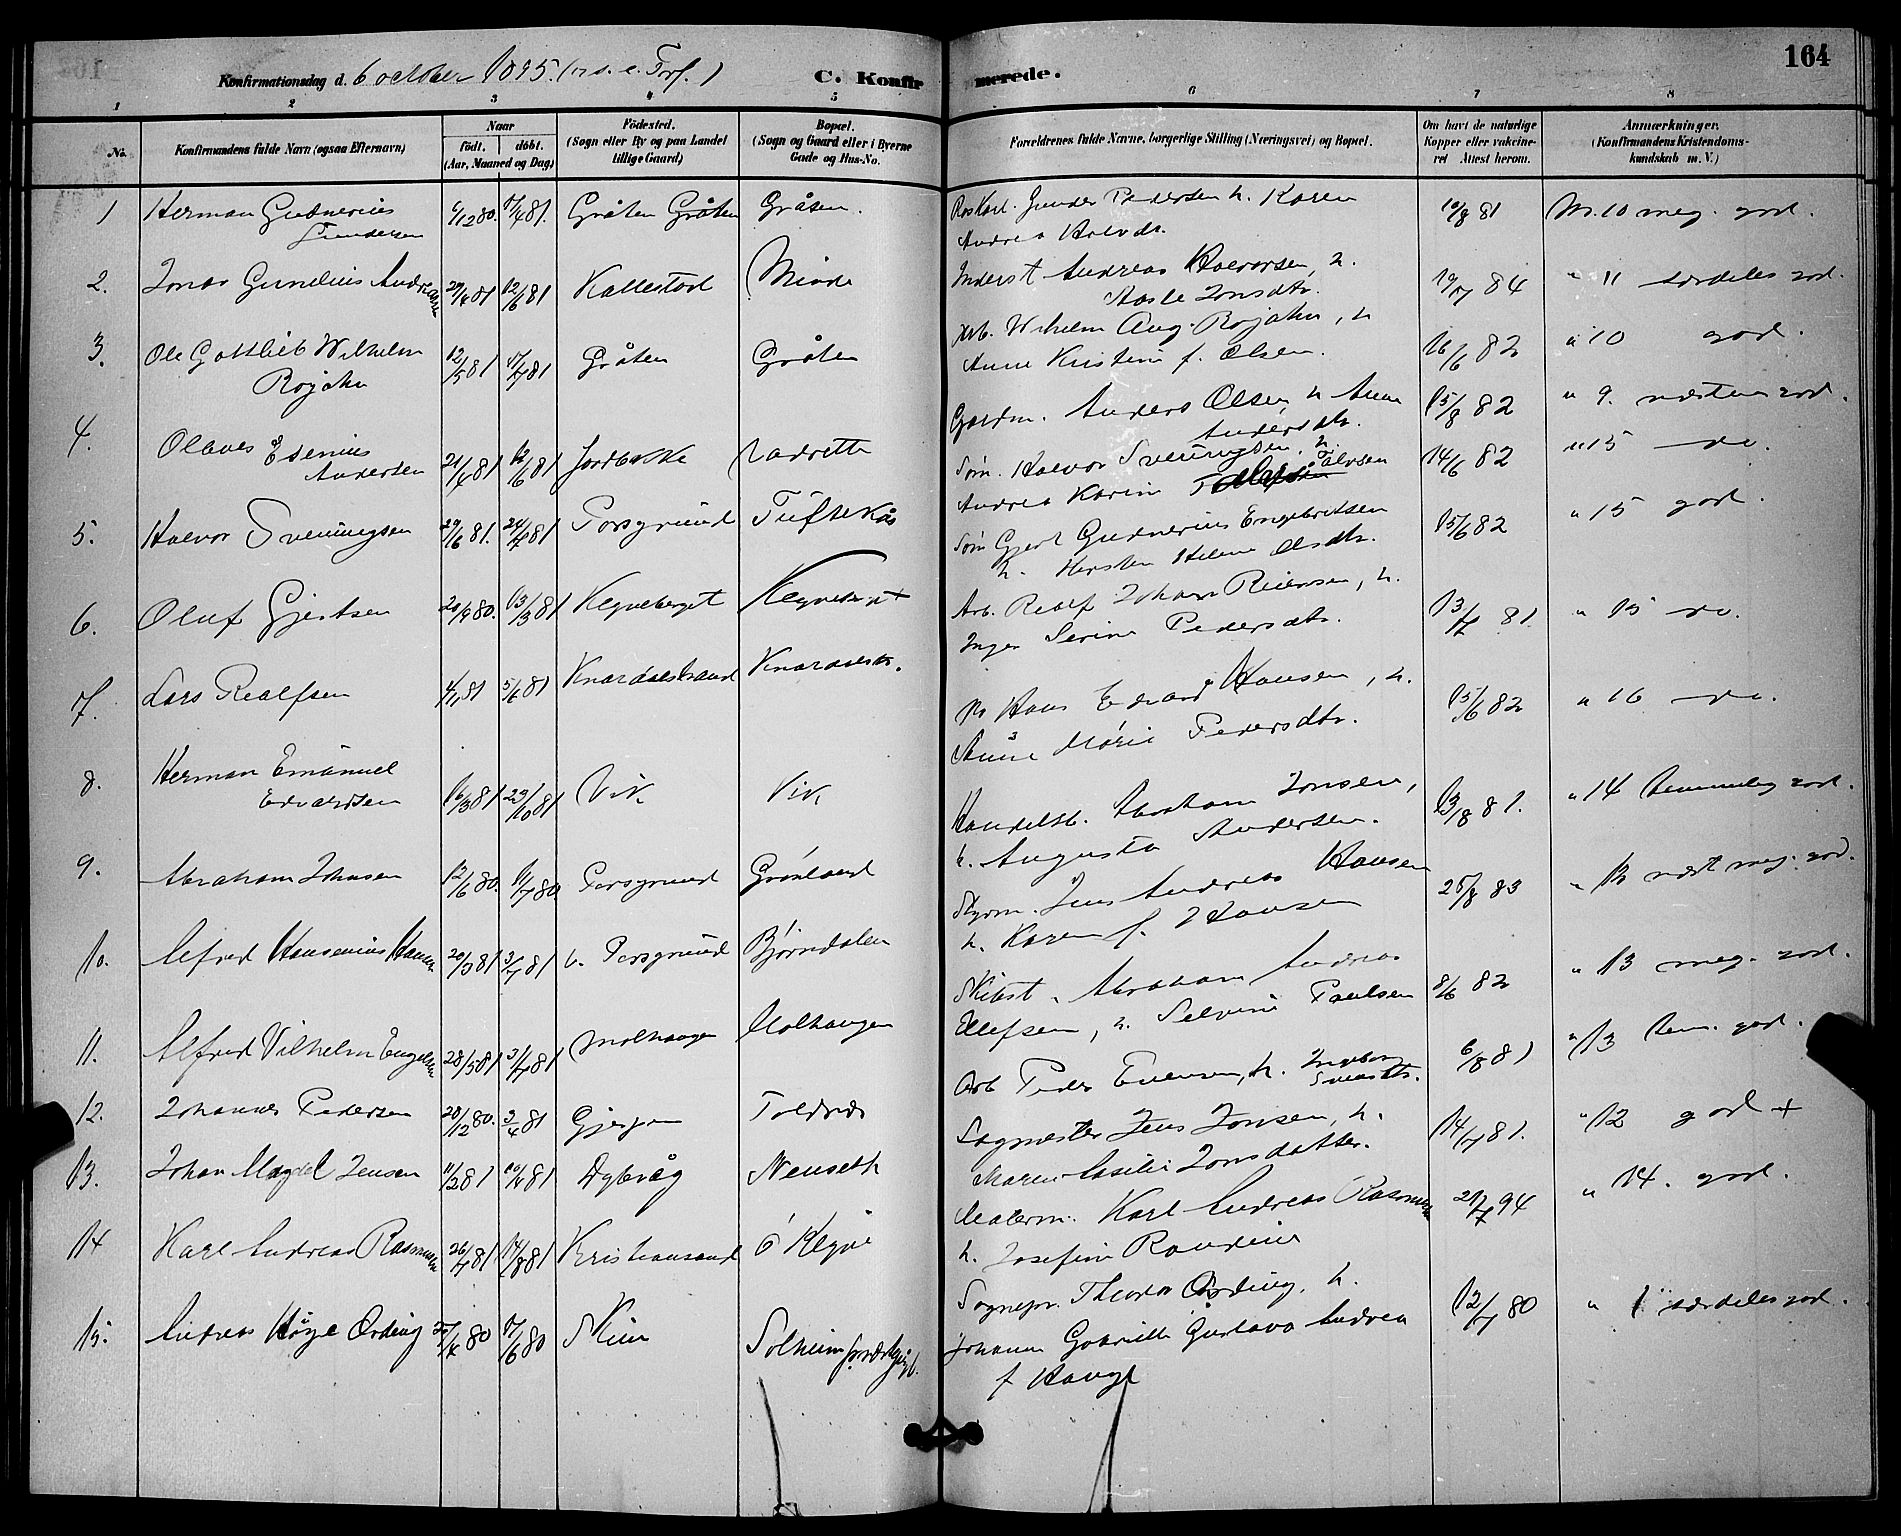 164
Konfirmationsdag d. 6 october 1895.
C. Konfirmerede.
1 2 3 4 5 6 7 8
No.
Konfirmandens fulde Navn (ogsaa Efternavn)
Naar
födt. döbt.
(Aar, Maaned og Dag)
Födested.
(Sogn eller By og paa Landet
tillige Gaard)
Bopæl.
(Sogn og Gaard eller i Byerne
Gade og Hus-No.
Forældrenes fulde Navne, borgerlige Stilling (Næringsvei) og Bopæl.
Om havt de naturlige
Kopper eller vakcine-
ret Attest herom.
Anmærkninger.
(Konfirmandens Kristendoms-
kundskab m. V.)
1 Herman Gudnerius 6/12 80. 17/4 81. Gråten Gråten Gråten.
Gundersen
Gunder Pedersen h. Karen 10/8 81 No. 10 meg. god.
Andrea
2. Jonas Gunelius Andreasen 29/4 81 12/6 81 Kallestad Minde
Inderst Andreas Halvorsen, h. 19/7 84 " 11 særdeles god.
Aasle Jonsdtr.
3. Ole Gottlieb Wilhelm 12/5 81 17/7 81 Gråten Gråten
Rojahn
Arb. Wilhelm Aug. Rojahn, h 16/6 82 " 10 god.
Anne Kristine f. Olsen.
4. Olaves Esenius 21/4 81 12/6 81 Jordbakke
Andersen
Gaardm. Anders Olsen, h Anne 15/8 82 " 9. næsten god.
Andersdtr.
5. Halvor Sveinungsen 29/6 81. 24/7 81 Porsgrund Tuftekås
Søm. Halvor Sveinungsen, h. 14/6 82 " 15 do.
Andrea Karine Talvsen
6. Oluf Gjertsen 20/9 80. 13/3 81 Klyveberget
Søm Gjert Gudnerius Engebretsen 15/6 82 " 15 god.
h. Kirsten Helene Olsdtr.
7. Lars Realfsen 4/1 81 5/6 81 Knardalstrand Knardalstr.
Arb. Realf Johan Reiersen, h. 13/7 81. " 15 do.
Inger Serine Pedersdtr.
8. Herman Emanuel 16/3 81 23/10 81 Vik Vik
Edvardsen
Hans Edvard Hansen, h. 15/6 82 " 16 do.
Anne Marie Pedersdtr.
9. Abraham Johnsen 12/6 80. 11/7 80 Porsgrund Grønland
Handelsb. Abraham Jonsen, 13/8 81. " 14 temmelig god.
h. Augusta Andersen.
10. Alfred Hansenius Hansen 20/3 81 3/7 81 v. Porsgrund Bjørndalen
Styrm. Jens Andreas Hansen 25/8 83 næst meg. god.
h. Karen f. Hansen
11. Alfred Vilhelm 28/5 81 3/7 81 Molhaugen Molhaugen
Skibst. Abraham Andreas 8/6 82 " 13 meg. god.
Ellefsen, h. Selvine Paulsen
12. Johannes Pedersen 28/12 80. 3/4 81 Gjerpen Toldnes
Arb Peder Evensen, h. Ingeborg 6/8 81 " 13 tem. god.
13. Johan Magdel Jensen 11/2 81 10/4 81 Dybvåg Nenseth
Sagmester Jens Jonsen, h. 14/7 81. " 12 god +
Maren Cecilie Jonsdatter.
14 Karl Andreas Rasmussen 26/4 81. 14/8 81 Kristiansand ö Klyve
Malerm. Karl Andreas Rasmussen 21/7 94 " 14. god.
h. Josefine
15. Andreas Høyg Ording 25/4 80 17/6 80 Skien Solheim
Sognepr. Theodor Ording, h. 12/7 80 " 1 særdeles god.
Johanne Gabrielle Gustava Andrea
f Haugl